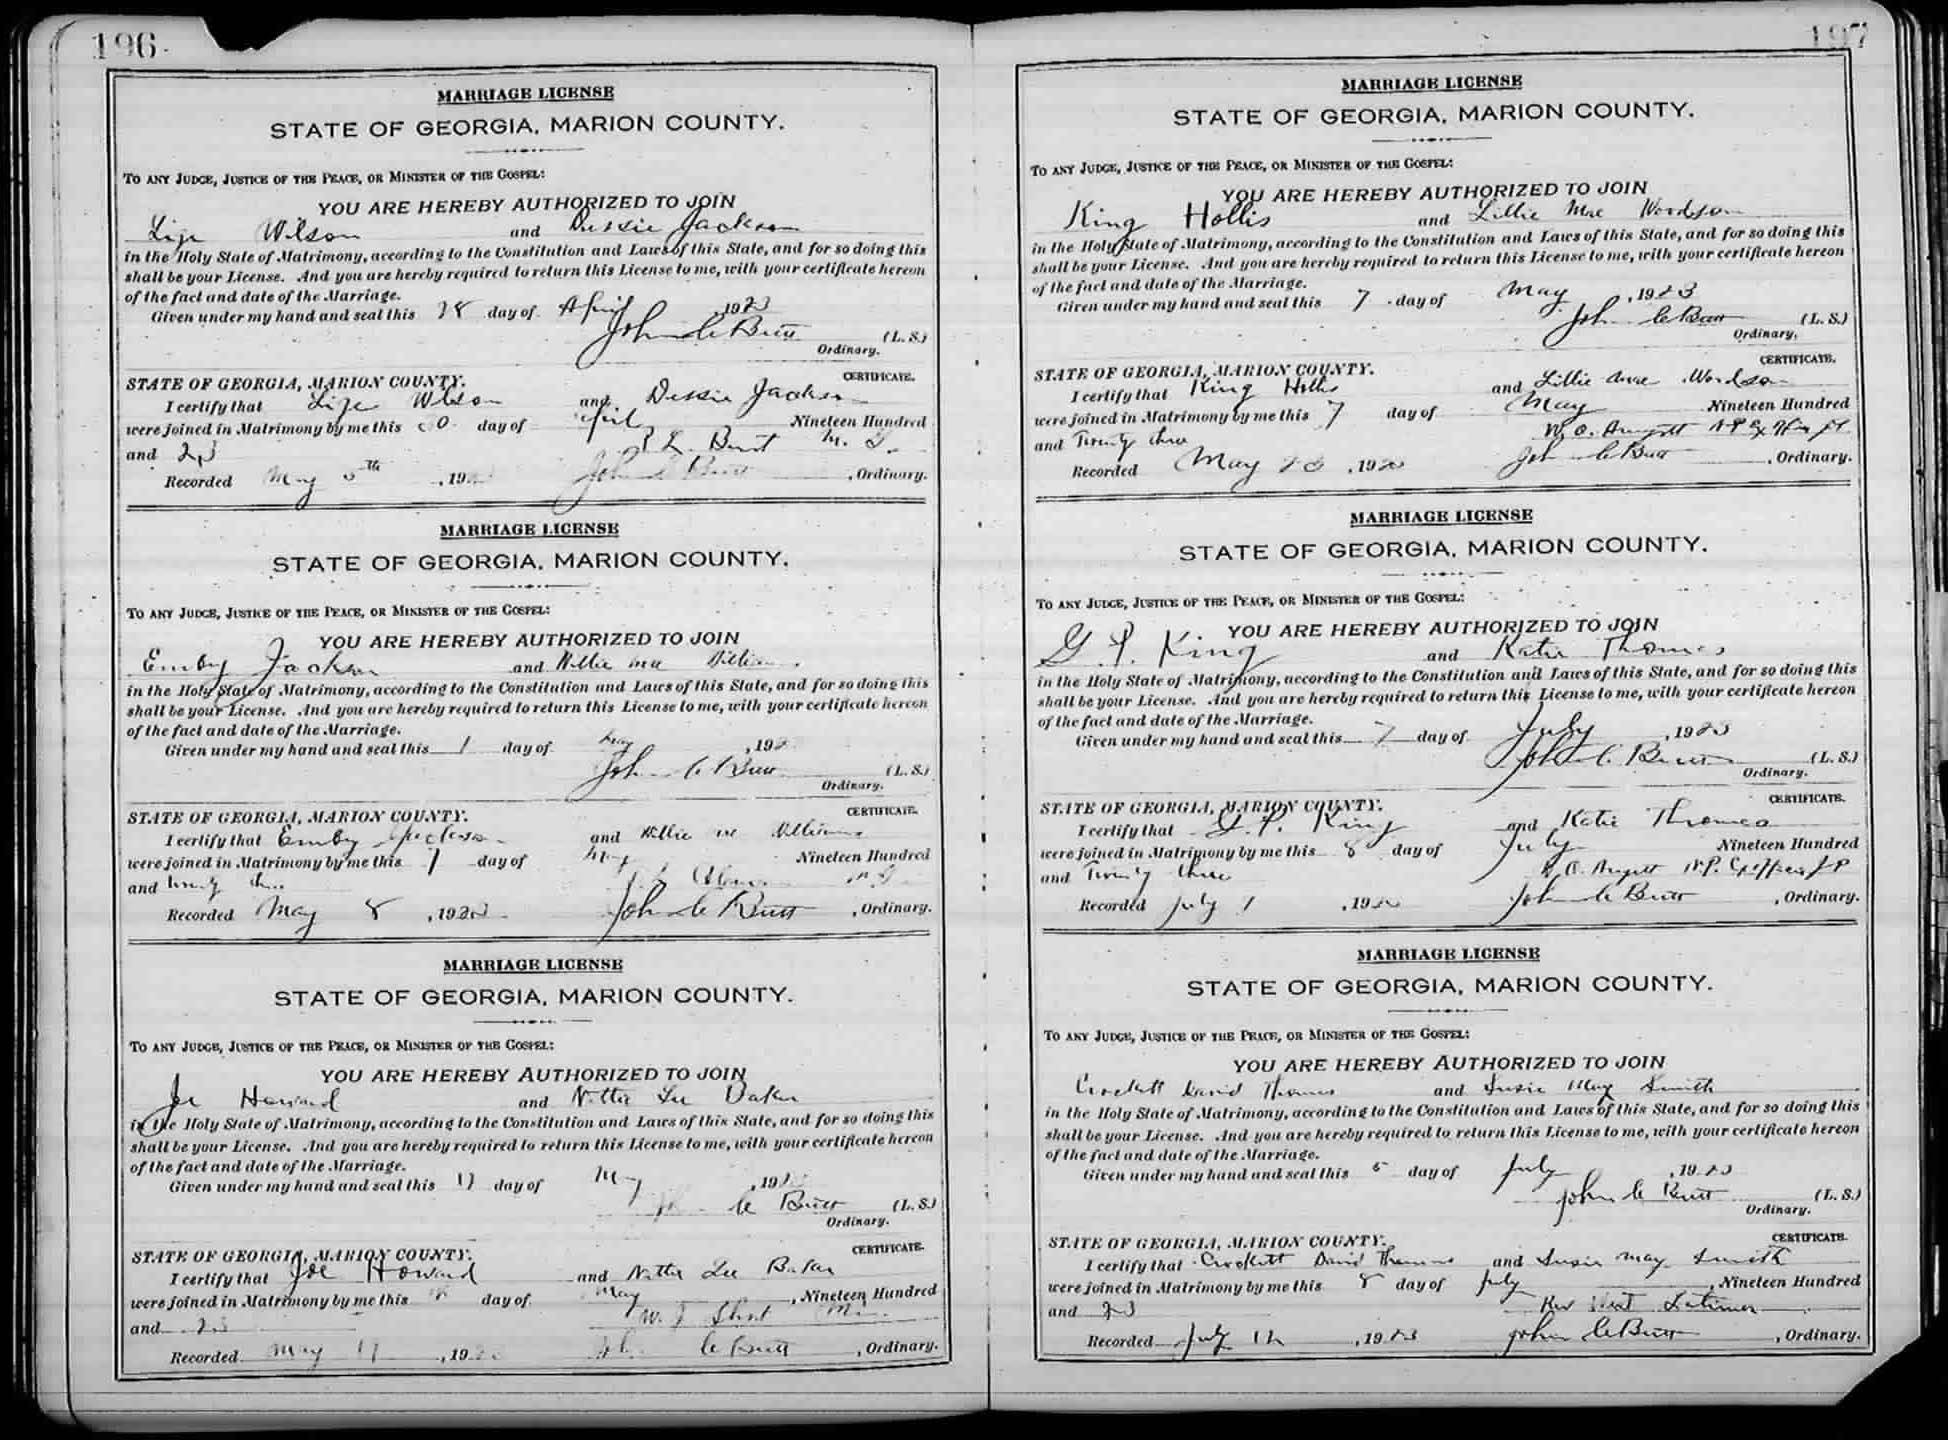 196
MARRIAGE LICENSE
STATE OF GEORGIA, MARION COUNTY.
TO ANY JUDGE, JUSTICE OF THE PEACE, OR MINISTER OF THE GOSPEL:
YOU ARE HEREBY AUTHORIZED TO JOIN
Lige Wilson and Dessie Jackson
in the Holy State of Matrimony, according to the Constitution and Laws of this State, and for so doing this
shall be your License. And you are hereby required to return this License to me, with your certificate hereon
of the fact and date of the Marriage.
Given under my hand and seal this 28 day of April 1923
John C Butt (L. S.)
Ordinary.
CERTIFICATE.
STATE OF GEORGIA, MARION COUNTY.
I certify that Lige Wilson and Dessie Jackson
were joined in Matrimony by me this day of April Nineteen Hundred
and 23 M. G.
Recorded May 5th, 19 John C Butt, Ordinary.
MARRIAGE LICENSE
STATE OF GEORGIA, MARION COUNTY.
TO ANY JUDGE, JUSTICE OF THE PEACE, OR MINISTER OF THE GOSPEL:
YOU ARE HEREBY AUTHORIZED TO JOIN
Emby Jackson and Willie Mae Williams
in the Holy State of Matrimony, according to the Constitution and Laws of this State, and for so doing this
shall be your License. And you are hereby required to return this License to me, with your certificate hereon
of the fact and date of the Marriage.
Given under my hand and seal this 1 day of May, 192
John C Butt (L. S.)
Ordinary.
CERTIFICATE.
STATE OF GEORGIA, MARION COUNTY.
I certify that Emby Jackson and Willie M Williams
were joined in Matrimony by me this day of May Nineteen Hundred
and twenty three M G
Recorded May 8, 1923 John C Butt, Ordinary.
MARRIAGE LICENSE
STATE OF GEORGIA, MARION COUNTY.
TO ANY JUDGE, JUSTICE OF THE PEACE, OR MINISTER OF THE GOSPEL:
YOU ARE HEREBY AUTHORIZED TO JOIN
Joe Howard and Nettie Lee Baker
in the Holy State of Matrimony, according to the Constitution and Laws of this State, and for so doing this
shall be your License. And you are hereby required to return this License to me, with your certificate hereon
of the fact and date of the Marriage.
Given under my hand and seal this day of May, 192
John C Butt (L. S.)
Ordinary.
CERTIFICATE.
STATE OF GEORGIA, MARION COUNTY.
I certify that Joe Howard and Nettie Lee Baker
were joined in Matrimony by me this day of May, Nineteen Hundred
and 23 W. J. Short
Recorded May, 192 John C Butt, Ordinary.
197
MARRIAGE LICENSE
STATE OF GEORGIA, MARION COUNTY.
TO ANY JUDGE, JUSTICE OF THE PEACE, OR MINISTER OF THE GOSPEL:
YOU ARE HEREBY AUTHORIZED TO JOIN
King Hollis and Lillie Mae Woodson
in the Holy State of Matrimony, according to the Constitution and Laws of this State, and for so doing this
shall be your License. And you are hereby required to return this License to me, with your certificate hereon
of the fact and date of the Marriage.
Given under my hand and seal this 7 day of May, 1923
John C Butt (L. S.)
Ordinary.
CERTIFICATE.
STATE OF GEORGIA, MARION COUNTY.
I certify that King Hollis and Lillie Mae Woodson
were joined in Matrimony by me this 7 day of May Nineteen Hundred
and Twenty three W. O. N P Ex
Recorded May 23, 1923 John C Butt, Ordinary.
MARRIAGE LICENSE
STATE OF GEORGIA, MARION COUNTY.
TO ANY JUDGE, JUSTICE OF THE PEACE, OR MINISTER OF THE GOSPEL:
YOU ARE HEREBY AUTHORIZED TO JOIN
G. P. King and Katie Thomas
in the Holy State of Matrimony, according to the Constitution and Laws of this State, and for so doing this
shall be your License. And you are hereby required to return this License to me, with your certificate hereon
of the fact and date of the Marriage.
Given under my hand and seal this 7 day of July, 1923
John C. Butt (L. S.)
Ordinary.
CERTIFICATE.
STATE OF GEORGIA, MARION COUNTY.
I certify that G. P. King and Katie Thomas
were joined in Matrimony by me this 8 day of July Nineteen Hundred
and Twenty three N.P. Ex officio J P
Recorded July, 192 John C Butt, Ordinary.
MARRIAGE LICENSE
STATE OF GEORGIA, MARION COUNTY.
TO ANY JUDGE, JUSTICE OF THE PEACE, OR MINISTER OF THE GOSPEL:
YOU ARE HEREBY AUTHORIZED TO JOIN
Crockett David Thomas and Susie May Smith
in the Holy State of Matrimony, according to the Constitution and Laws of this State, and for so doing this
shall be your License. And you are hereby required to return this License to me, with your certificate hereon
of the fact and date of the Marriage.
Given under my hand and seal this 5 day of July, 1923
John C Butt (L. S.)
Ordinary.
CERTIFICATE.
STATE OF GEORGIA, MARION COUNTY.
I certify that Crockett David Thomas and Susie May Smith
were joined in Matrimony by me this 8 day of July, Nineteen Hundred
and 23 Rev Latimer
Recorded July 12, 1923 John C Butt, Ordinary.